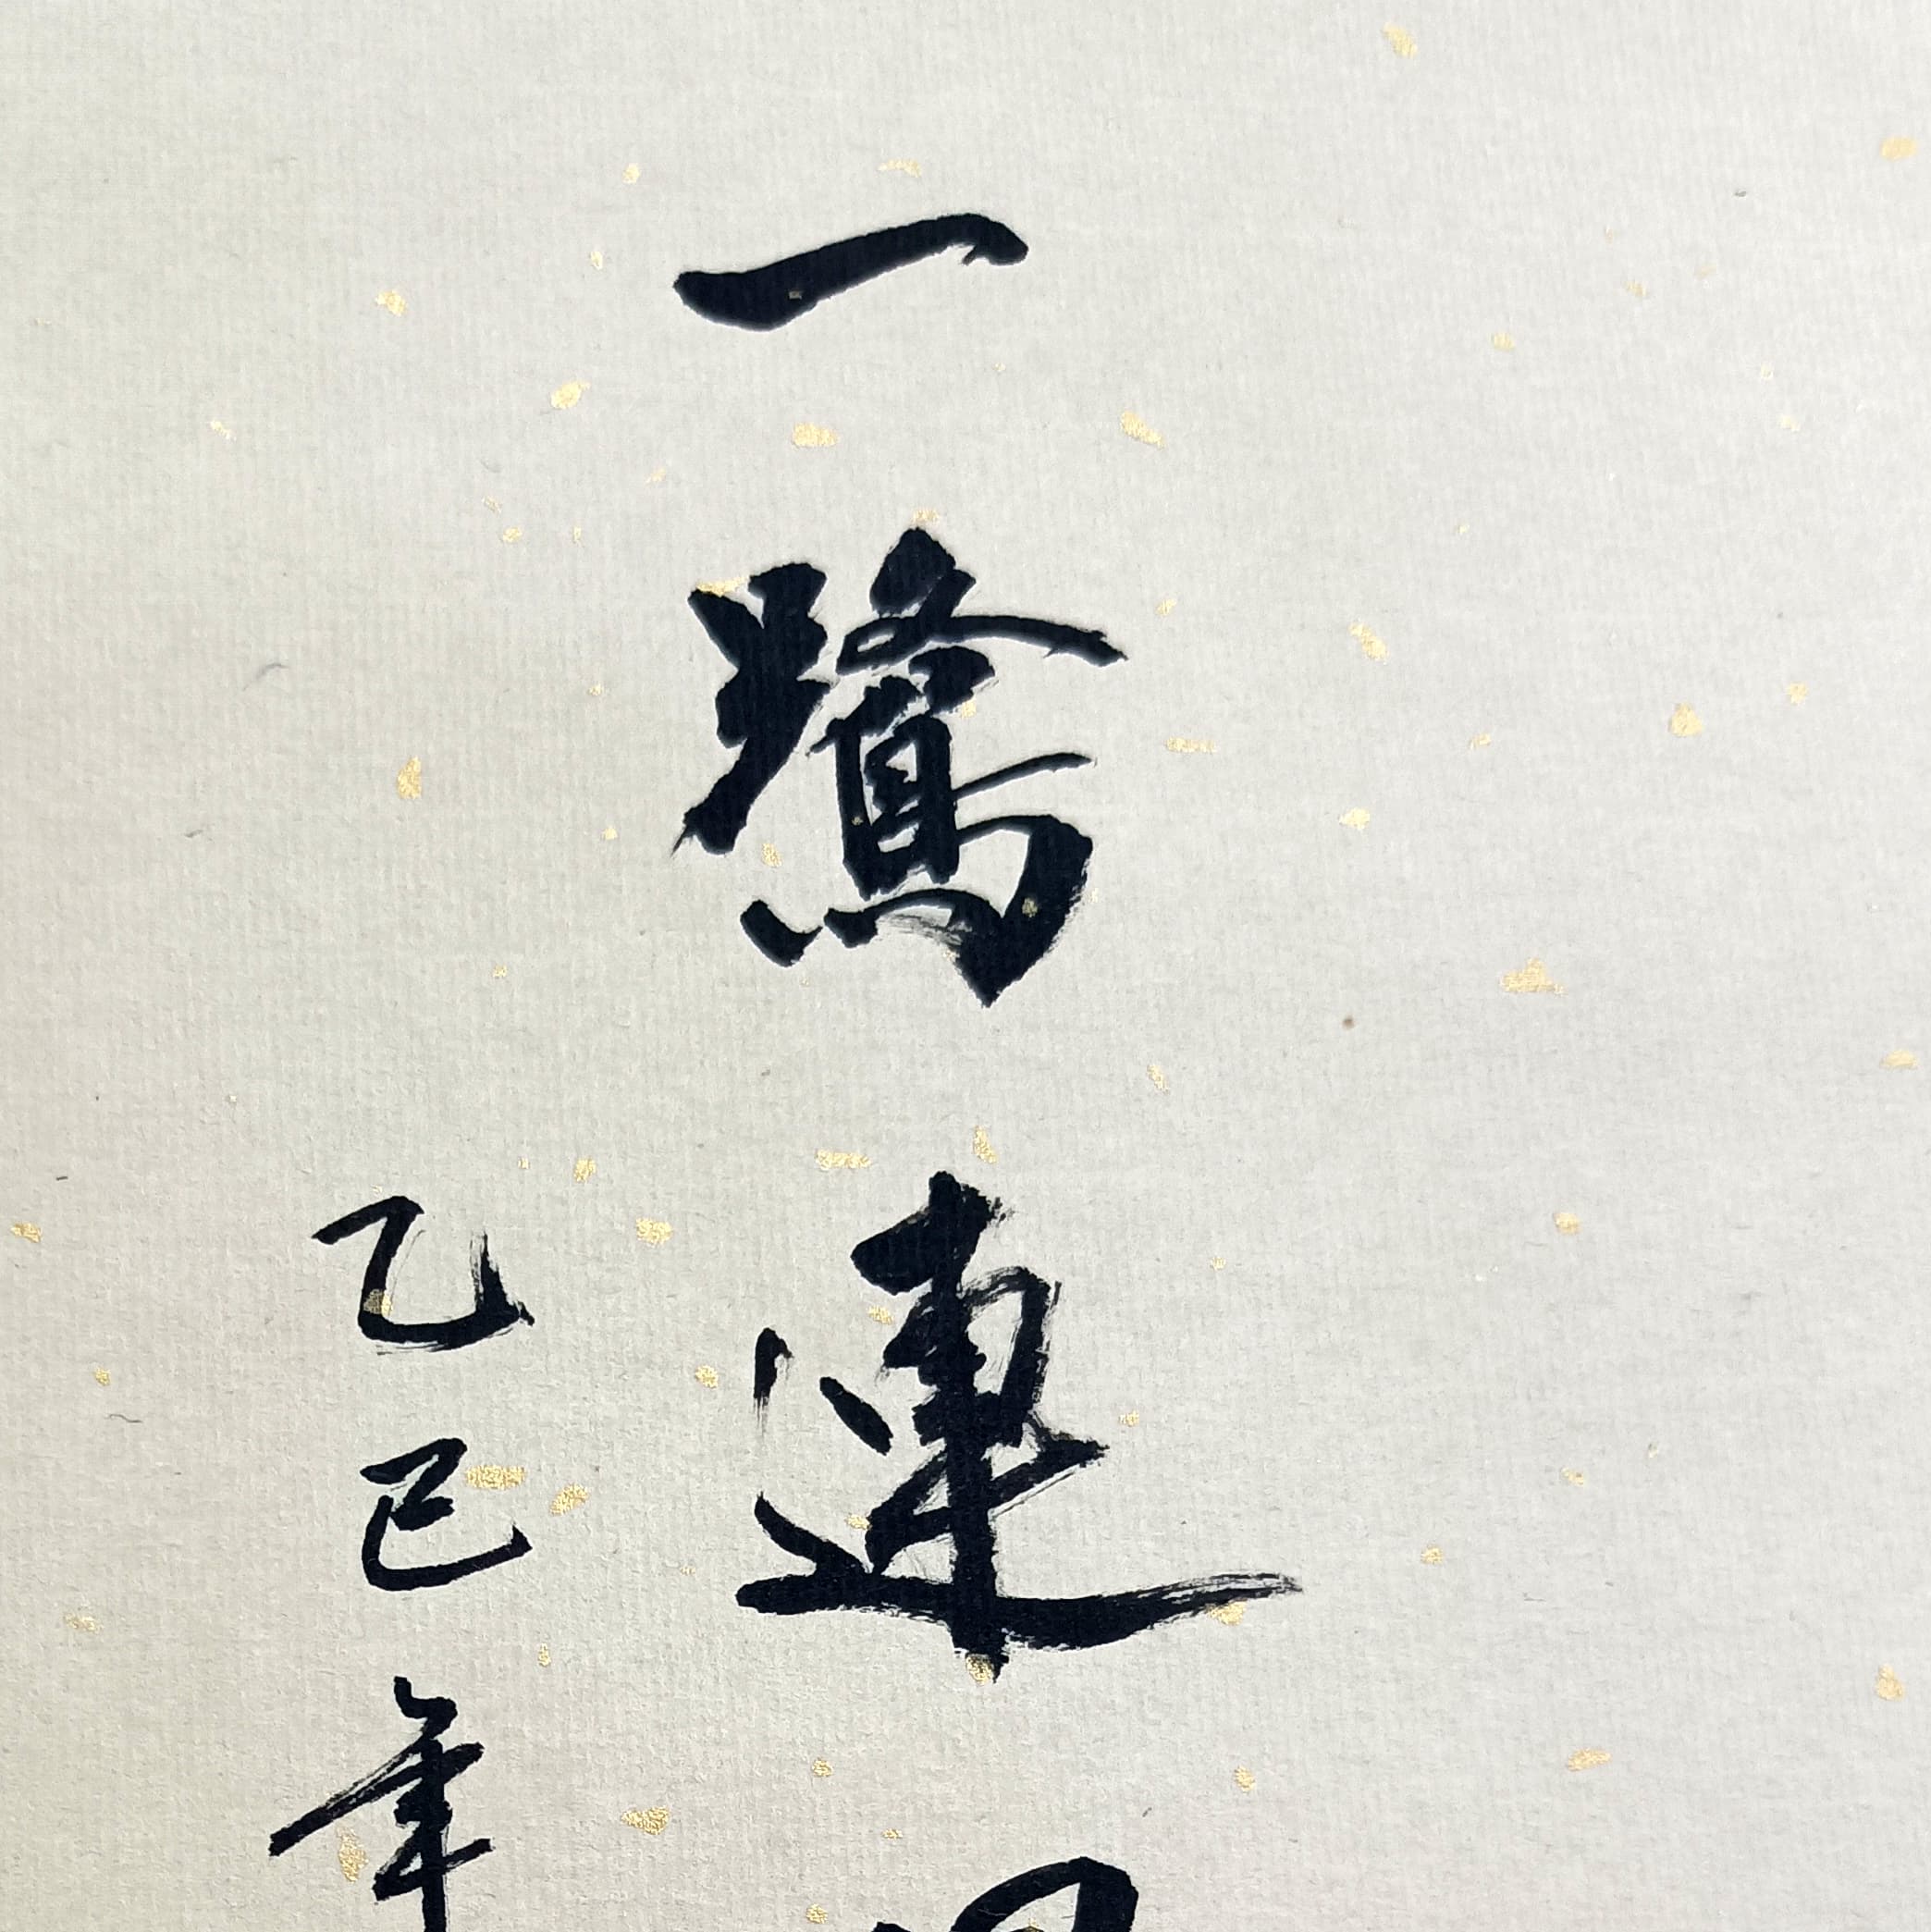 一鷺連
乙巳年